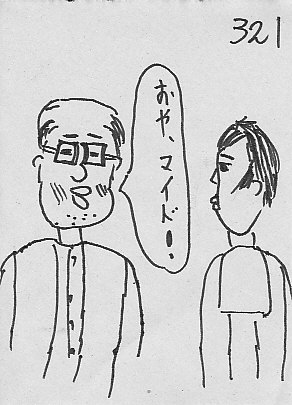 321
おや、マイド!、